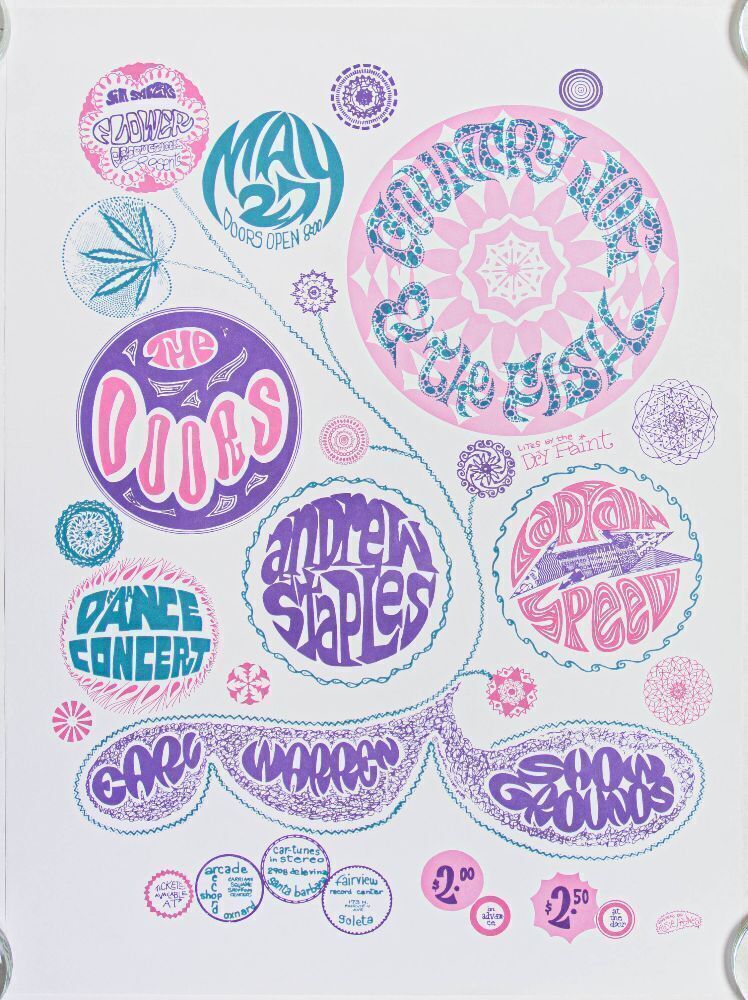 FLOWER
MAY
27
DOORS OPEN 8:00
COUNTRY JOE
& the FISH
THE
DOORS
LITES BY the
DRY Paint
andrew
staples
CAPTAIN
SPEED
A
DANCE
CONCERT
EARL WARREN SHOW
GROUNDS
TICKETS
AVAILABLE
AT*
arcade
record
shop
oxnard
car-tunes
in stereo
santa barbara
fairview
record center
goleta
$2.00
in
advan
ce
$2.50
at
the
door